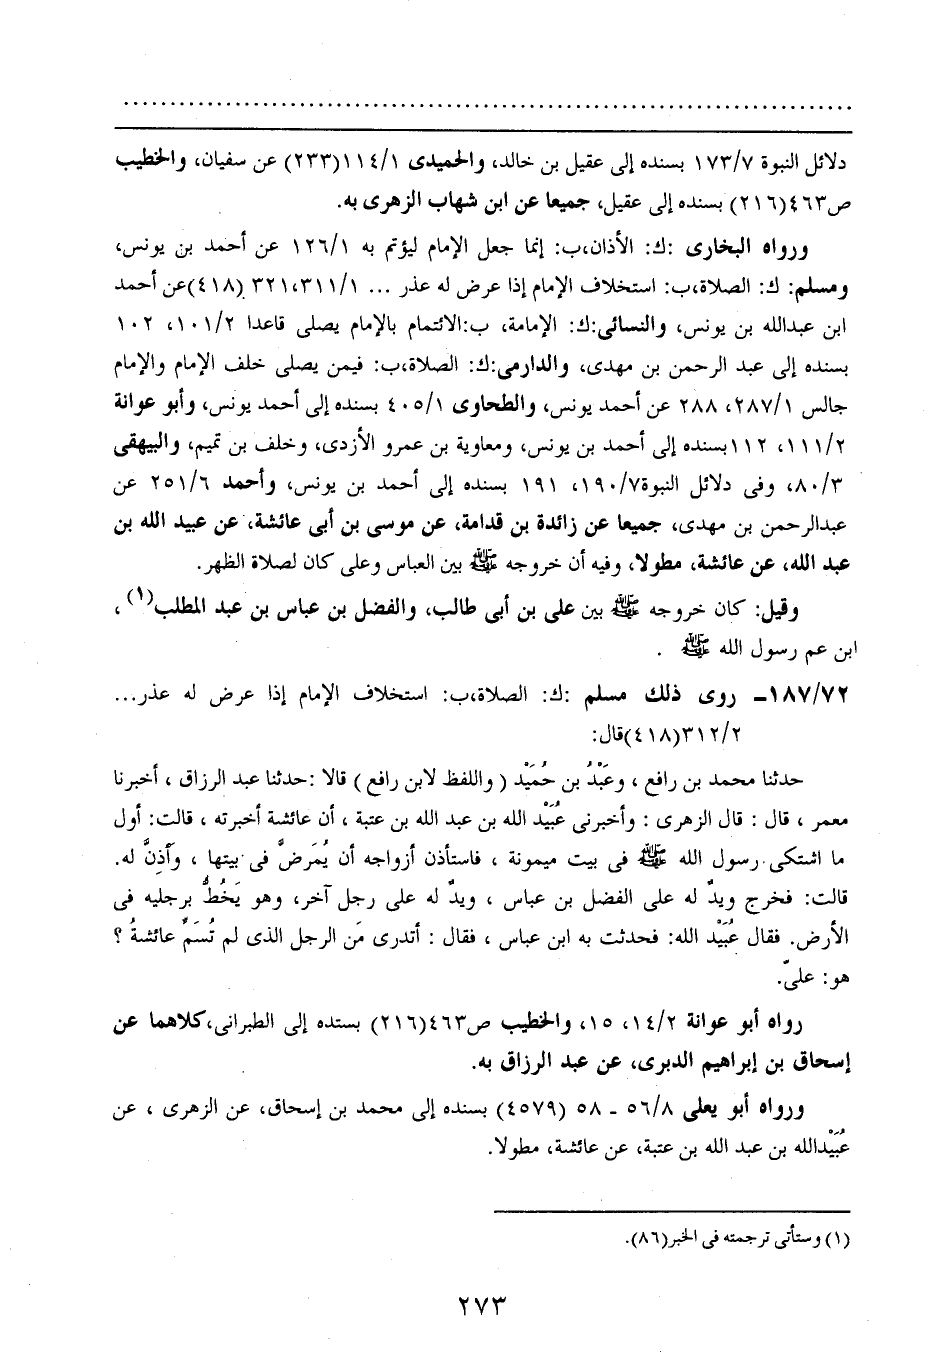 دلائل النبوة ١٧٣/٧ بسنده إلى عقيل بن خالد، والحميدى ١١٤/١(٢٣٣) عن سفيان، والخطيب
ص٤٦٣(٢١٦) بسنده إلى عقيل، جميعا عن ابن شهاب الزهرى به.
ورواه البخارى :ك: الأذان،ب: إنما جعل الإمام ليؤتم به ١٢٦/١ عن أحمد بن يونس،
ومسلم: ك: الصلاة،ب: استخلاف الإمام إذا عرض له عذر ... ٣٢١،٣١١/١ (٤١٨)عن أحمد
ابن عبدالله بن يونس، والنسائى:ك: الإمامة، ب:الائتمام بالإمام يصلى قاعدا ١٠١/٢، ١٠٢
بسنده إلى عبد الرحمن بن مهدى، والدارمى:ك: الصلاة،ب: فيمن يصلى خلف الإمام والإمام
جالس ٢٨٧/١، ٢٨٨ عن أحمد يونس، والطحاوى ٤٠٥/١ بسنده إلى أحمد يونس، وأبو عوانة
١١١/٢، ١١٢بسنده إلى أحمد بن يونس، ومعاوية بن عمرو الأزدى، وخلف بن تميم، والبيهقى
٨٠/٣، وفى دلائل النبوة١٩٠/٧، ١٩١ بسنده إلى أحمد بن يونس، وأحمد ٢٥١/٦ عن
عبدالرحمن بن مهدى، جميعا عن زائدة بن قدامة، عن موسى بن أبى عائشة، عن عبيد الله بن
عبد الله، عن عائشة، مطولا، وفيه أن خروجه ﷺ بين العباس وعلى كان لصلاة الظهر.
وقيل: كان خروجه ﷺ بين على بن أبى طالب، والفضل بن عباس بن عبد المطلب(١) ،
ابن عم رسول الله ﷺ .
١٨٧/٧٢ـ روى ذلك مسلم :ك: الصلاة،ب: استخلاف الإمام إذا عرض له عذر...
٣١٢/٢(٤١٨)قال:
حدثنا محمد بن رافع ، وعَبْدُ بن حُمَيْد ( واللفظ لابن رافع ) قالا :حدثنا عبد الرزاق ، أخبرنا
معمر ، قال : قال الزهرى : وأخبرنى عُبَيْد الله بن عبد الله بن عتبة ، أن عائشة أخبرته ، قالت: أول
ما اشتكى رسول الله ﷺ فى بيت ميمونة ، فاستأذن أزواجه أن يُمَرضَّ فى بيتها ، وأَذِنَّ له.
قالت: فخرج ويدٌ له على الفضل بن عباس ، ويدٌ له على رجل آخر، وهو يَخُطُّ برجليه فى
الأرض. فقال عُبَيْد الله: فحدثت به ابن عباس ، فقال : أتدرى مَن الرجل الذى لم تُسَمِّ عائشةُ ؟
هو: علىّ.
رواه أبو عوانة ١٤/٢، ١٥، والخطيب ص٤٦٣(٢١٦) بستده إلى الطبرانى،كلاهما عن
إسحاق بن إبراهيم الدبرى، عن عبد الرزاق به.
ورواه أبو يعلى ٥٦/٨ ـ ٥٨ (٤٥٧٩) بسنده إلى محمد بن إسحاق، عن الزهرى ، عن
عُبَيْدالله بن عبد الله بن عتبة، عن عائشة، مطولا.
(١) وستأتى ترجمته فى الخبر(٨٦).
٢٧٣